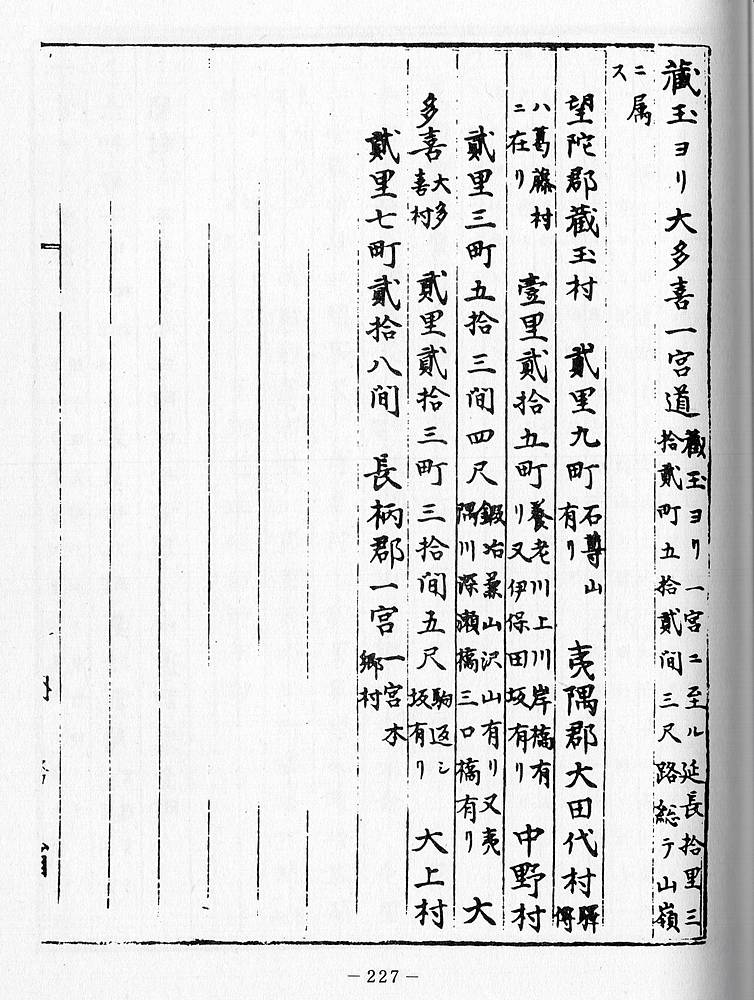 蔵玉ヨリ大多喜一宮道 蔵玉ヨリ一宮ニ至ル延長拾里三
拾貳町五拾貳間三尺路総テ山嶺
ニ属
ス
望陀郡蔵玉村 貳里九町 石尊山
有リ 夷隅郡大田代村 驛
傳
ハ葛藤村
ニ在リ 壹里貳拾五町 養老川上川岸橋有
リ又伊保田坂有リ 中野村
貳里三町五拾三間四尺 鍛冶兼山沢山有リ又夷
隅川深瀬橋三口橋有リ 大
多喜 大多
喜村 貳里貳拾三町三拾間五尺 駒返シ
坂有リ 大上村
貳里七町貳拾八間 長柄郡一宮 一宮本
郷村
－227－